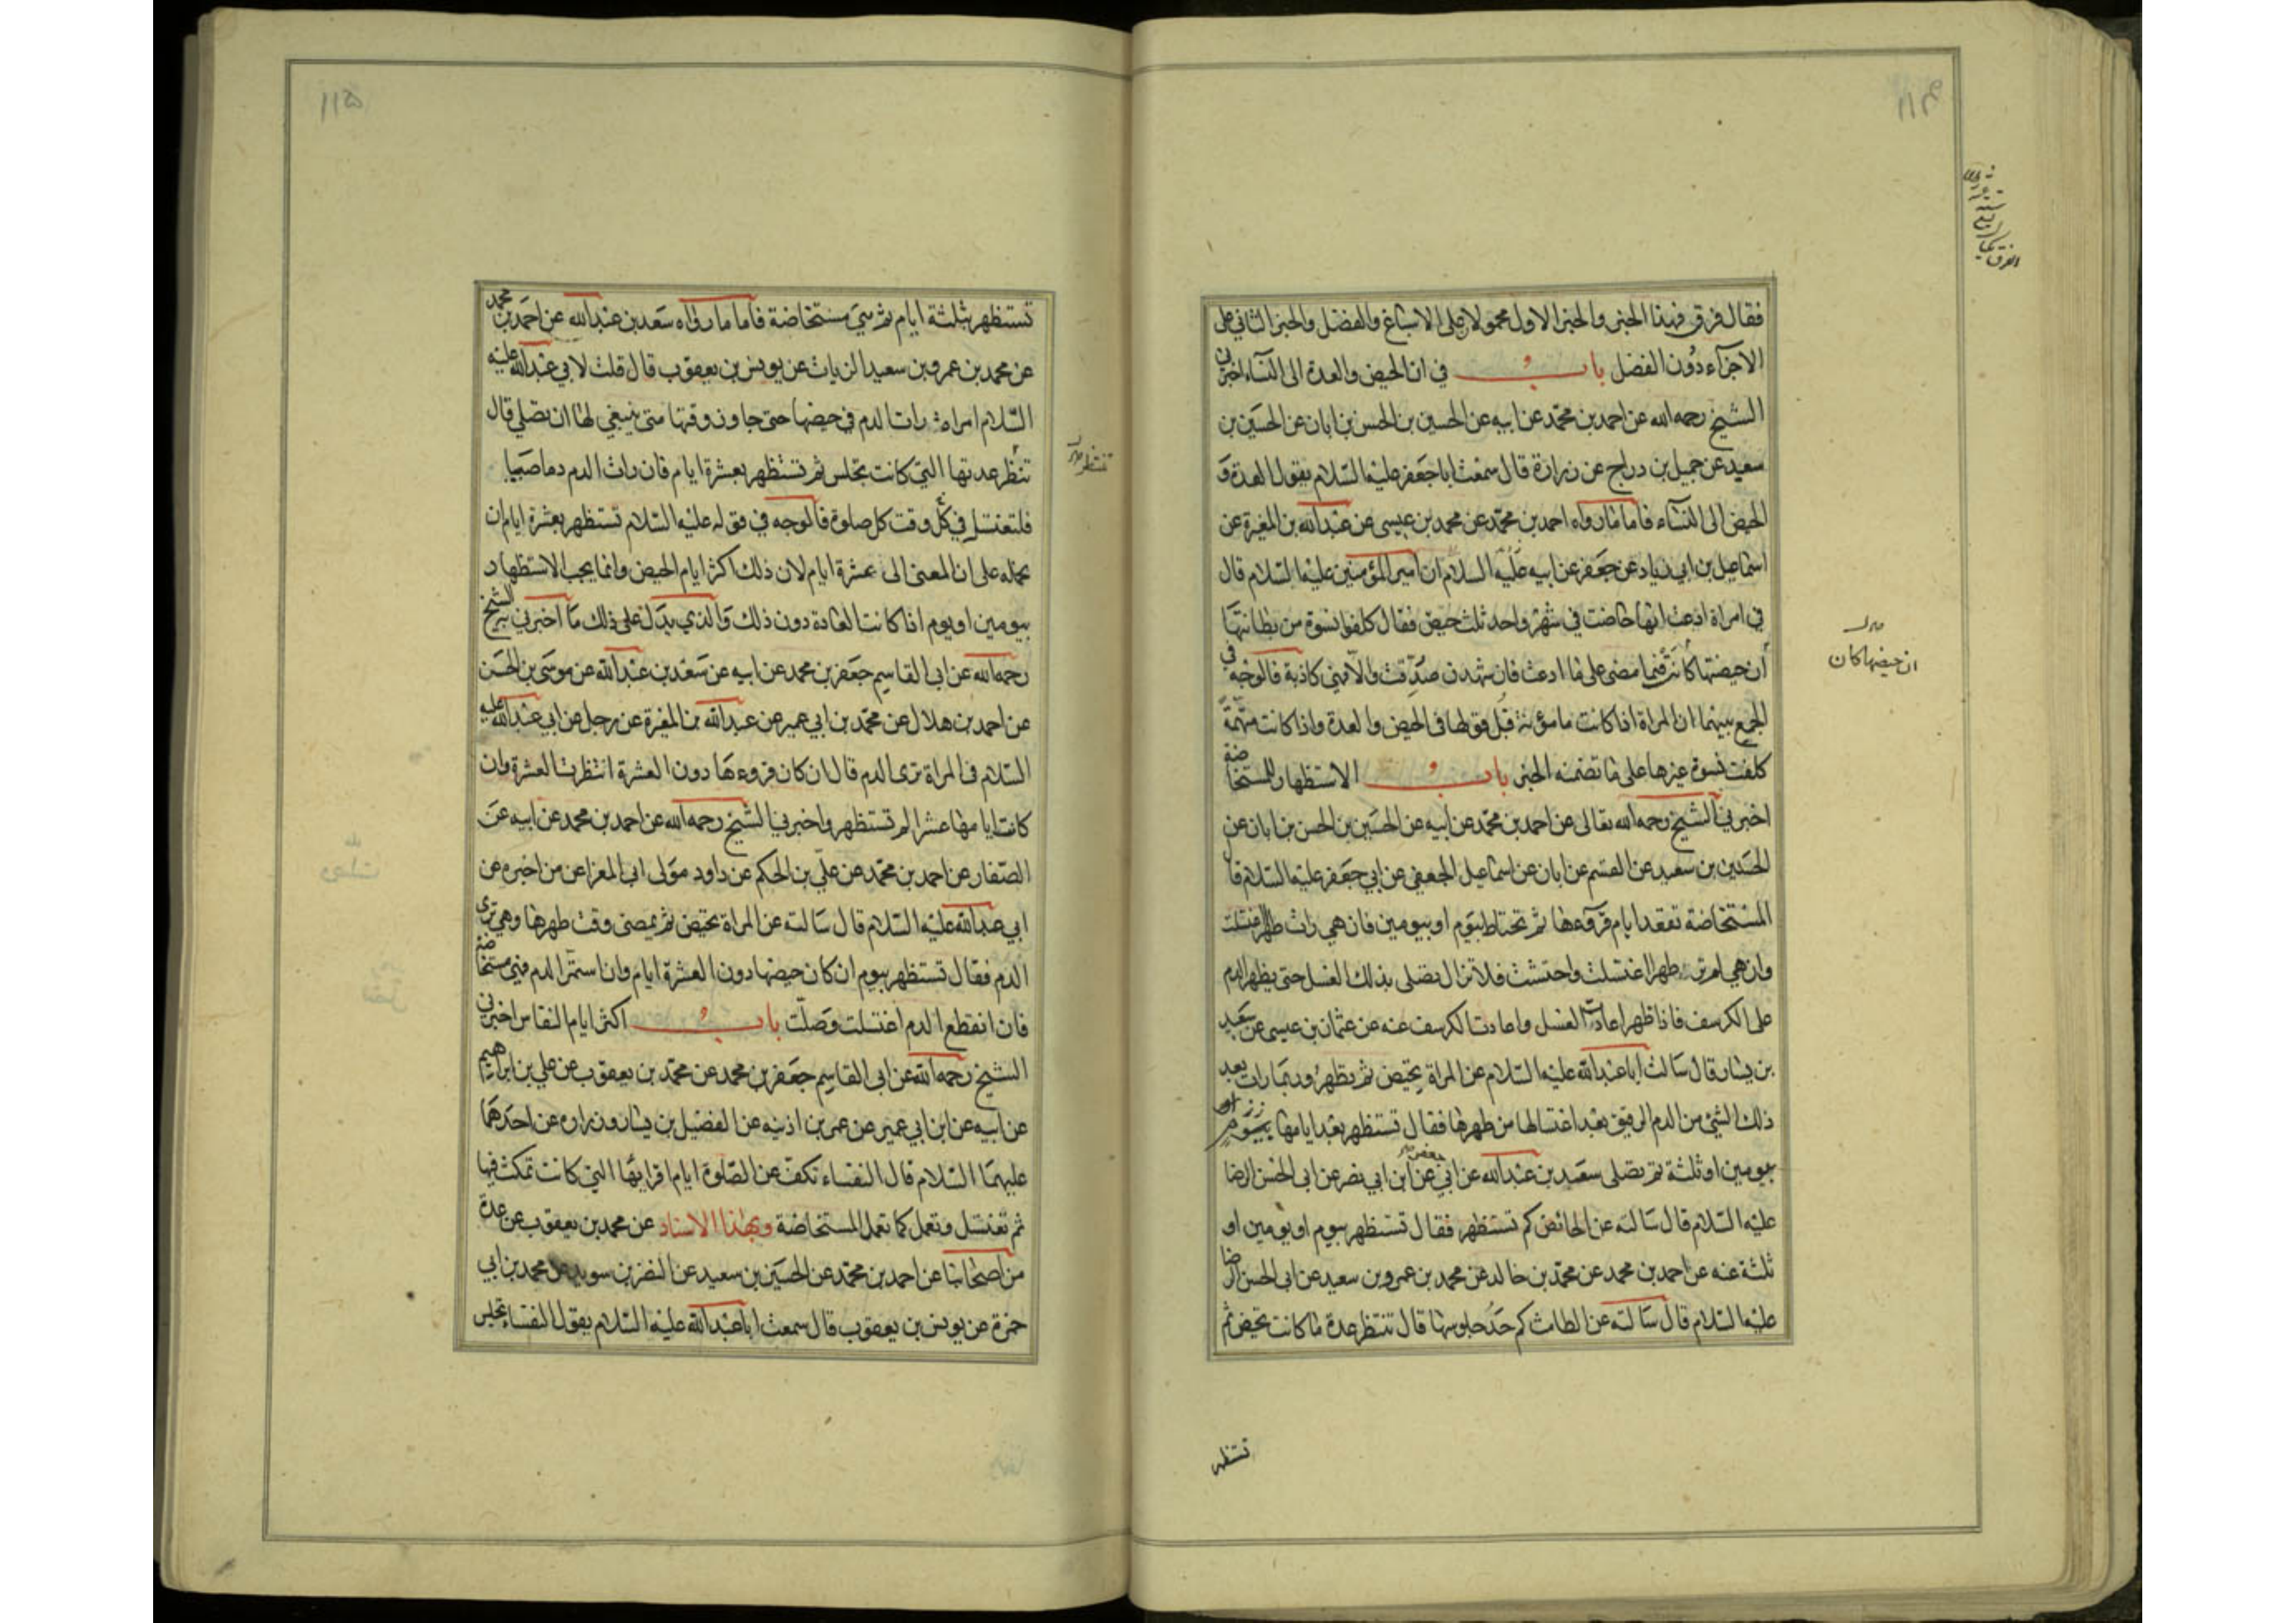 فقال فرق فهذا الخبر والخبر الاول محمولان على الاسباغ والفضل والخبر الثاني على
الاجزاء دون الفضل باب في ان الحيض والعدة الى النساء اخبرني
الشيخ رحمه الله عن احمد بن محمد عن ابيه عن الحسين بن الحسن بن ابان عن الحسين بن
سعيد عن جميل بن دراج عن زرارة قال سمعت ابا جعفر عليه السلام يقول العدة و
الحيض الى النساء فاما ما رواه احمد بن محمد عن محمد بن عيسى عن عبد الله بن المغيرة عن
اسماعيل بن ابي زياد عن جعفر عن ابيه عليه السلام ان امير المؤمنين عليه السلام قال
في امراة ادعت انها حاضت في شهر واحد ثلث حيض فقال كلفوا نسوة من بطانتها
أن حيضتها كانت فيما مضى على ما ادعت فان شهدن صدقت والا فهي كاذبة فالوجه في
الجمع بينهما ان المراة اذا كانت مامونة قبل قولها في الحيض والعدة واذا كانت متهمة
كلفت نسوة غيرها على ما تضمنه الخبر باب الاستظهار للمستحاضة
اخبرني الشيخ رحمه الله تعالى عن احمد بن محمد عن ابيه عن الحسين بن الحسن بن ابان عن
الحسين بن سعيد عن القسم عن ابان عن اسماعيل الجعفي عن ابي جعفر عليه السلام قا
المستحاضة تقعد ايام قرؤها ثم تحتاط بيوم او بيومين فان هي رات طهرا اغتسلت
وان هي لم تر طهرا اغتسلت واحتشت فلا تزال تصلى بذلك الغسل حتى يظهر الدم
على الكرسف فاذا ظهر اعادت الغسل واعادت الكرسف عنه عن عثمان بن عيسى عن سعيد
بن يسار قال سالت ابا عبد الله عليه السلام عن المراة تحيض ثم تطهر وربما رات بعد
ذلك الشئ من الدم الرقيق بعد اغتسالها من طهرها فقال تستظهر بعد ايامها بيوم او
بيومين او ثلثة ثم تصلى سعيد بن عبد الله عن ابي جعفر عن ابن ابي نصر عن ابي الحسن الرضا
عليه السلام قال سالته عن الحائض كم تستظهر فقال تستظهر بيوم او يومين او
ثلثة عنه عن احمد بن محمد عن محمد بن خالد عن محمد بن عمرو بن سعيد عن ابي الحسن الرضا
عليه السلام قال سالته عن الطامث كم حد جلوسها قال تنتظر عدة ما كانت تحيض ثم
ان حيضها كان
تستظهر
تستظهر بثلثة ايام ثم هي مستحاضة فاما ما رواه سعد بن عبد الله عن احمد بن محمد
عن محمد بن عمرو بن سعيد الزيات عن يونس بن يعقوب قال قلت لابي عبد الله عليه
السلام امراة رات الدم في حيضها حتى جاوز وقتها متى ينبغي لها ان تصلي قال
تنظر عدتها التي كانت تجلس ثم تستظهر بعشرة ايام فان رات الدم دما صبيبا
فلتغتسل في كل وقت كل صلوة فالوجه في قوله عليه السلام تستظهر بعشرة ايام ان
نحمله على ان المعنى الى عشرة ايام لان ذلك اكثر ايام الحيض وانما يجب الاستظهار
بيومين او يوم اذا كانت العادة دون ذلك والذي يدل على ذلك ما اخبرني الشيخ
رحمه الله عن ابي القاسم جعفر بن محمد عن ابيه عن سعد بن عبد الله عن موسى بن الحسن
عن احمد بن هلال عن محمد بن ابي عمير عن عبد الله بن المغيرة عن رجل عن ابي عبد الله عليه
السلام في المراة ترى الدم قال ان كان قروءها دون العشرة انتظرت العشرة وان
كانت ايامها عشرا لم تستظهر واخبرني الشيخ رحمه الله عن احمد بن محمد عن ابيه عن
الصفار عن احمد بن محمد عن علي بن الحكم عن داود مولى ابي المغرا عن من اخبره عن
ابي عبد الله عليه السلام قال سالته عن المراة تحيض ثم يمضى وقت طهرها وهي ترى
الدم فقال تستظهر بيوم ان كان حيضها دون العشرة ايام وان استمر الدم فهي مستحاضة
فان انقطع الدم اغتسلت وصلت باب اكثر ايام النفاس اخبرني
الشيخ رحمه الله عن ابي القاسم جعفر بن محمد عن محمد بن يعقوب عن علي بن ابراهيم
عن ابيه عن ابن ابي عمير عن عمر بن اذينه عن الفضيل بن يسار وزراره عن احدهما
عليهما السلام قال النفساء تكف عن الصلوة ايام اقرائها التي كانت تمكث فيها
ثم تغتسل وتعمل كما تعمل المستحاضة وبهذا الاسناد عن محمد بن يعقوب عن عدة
من اصحابنا عن احمد بن محمد عن الحسين بن سعيد عن النضر بن سويد عن محمد بن ابي
حمزة عن يونس بن يعقوب قال سمعت ابا عبد الله عليه السلام يقول النفساء تجلس